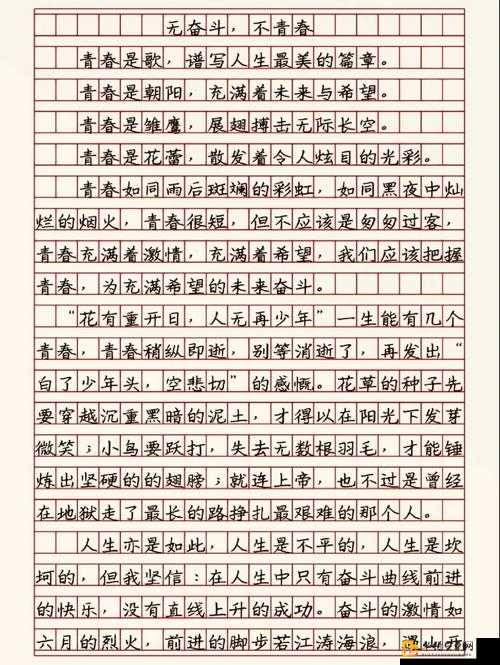 无奋斗，不青春
青春是歌，谱写人生最美的篇章。
青春是朝阳，充满着未来与希望。
青春是雏鹰，展翅搏击无际长空。
青春是花蕾，散发着令人炫目的光彩。
青春如同雨后斑斓的彩虹，如同黑夜中灿
烂的烟火，青春很短，但不应该是匆匆过客，
青春充满着激情，充满着希望，我们应该把握
青春，为充满希望的未来奋斗。
“花有重开日，人无再少年”一生能有几个
青春，青春稍纵即逝，别等消逝了，再发出“
白了少年头，空悲切”的感慨。花草的种子先
要穿越沉重黑暗的泥土，才得以在阳光下发芽
微笑；小鸟要跌打，失去无数根羽毛，才能锤
炼出坚硬的的翅膀；就连上帝，也不过是曾经
在地狱走了最长的路挣扎最艰难的那个人。
人生亦是如此，人生是不平的，人生是坎
坷的，但我坚信：在人生中只有奋斗曲线前进
的快乐，没有直线上升的成功。奋斗的激情如
六月的烈火，前进的脚步若江涛海浪，遇山开